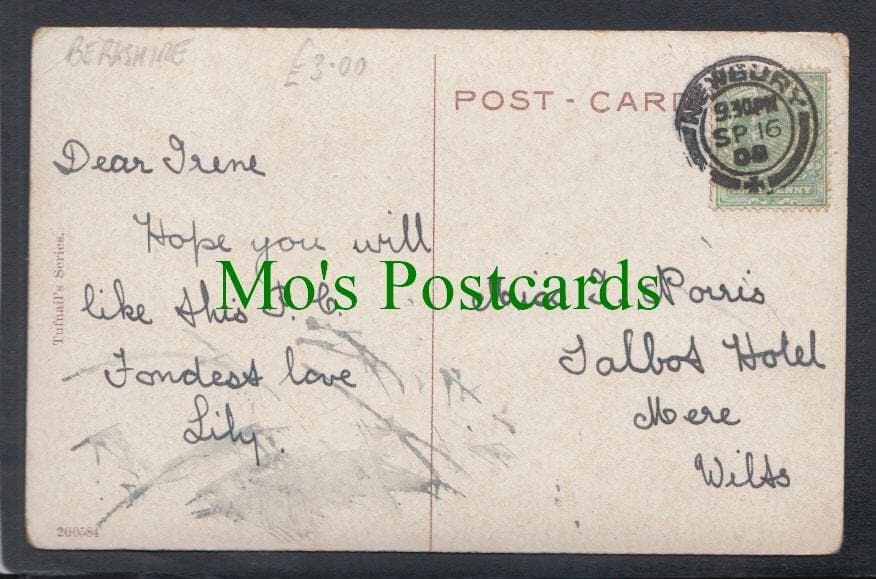 BERKSHIRE
£3.00
POST-CARD
NEWBURY
9.30PM
SP 16
08
PENNY
Dear Irene
Hope you will
like this P.C.
Fondest love
Lily.
Mo's Postcards
Miss I. Norris
Talbot Hotel
Mere
Wilts
Tufnail's Series.
200584